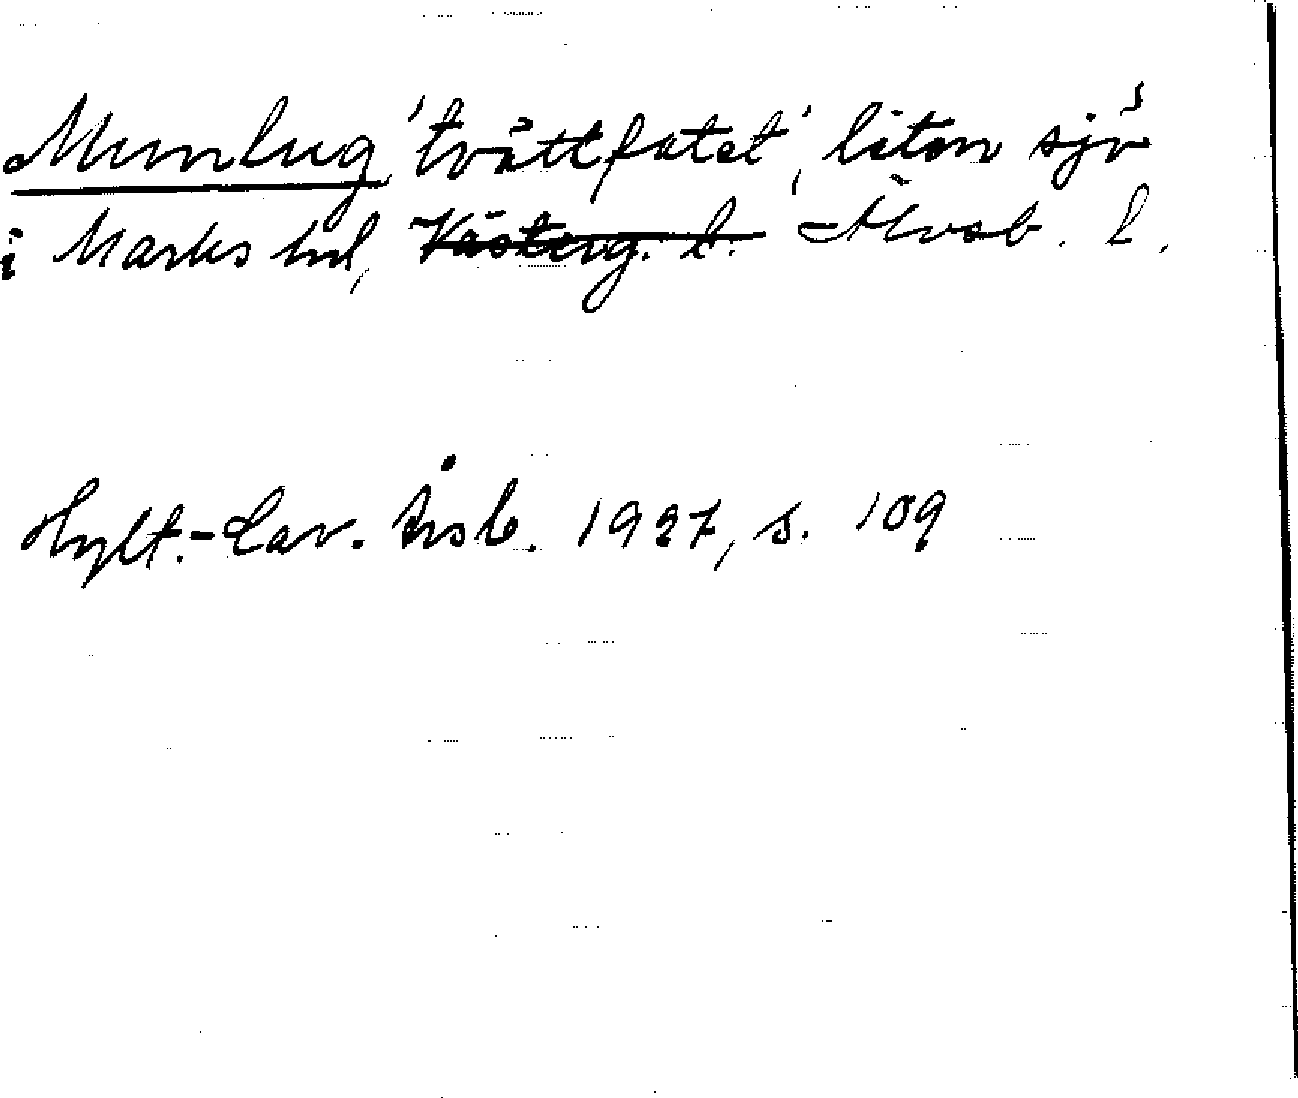 Munlug 'tvättfatet', liten sjö
i Marks hd, Västerg. l. Älvsb. l.
Hylt.-Cav. Årsb. 1937, s. 109